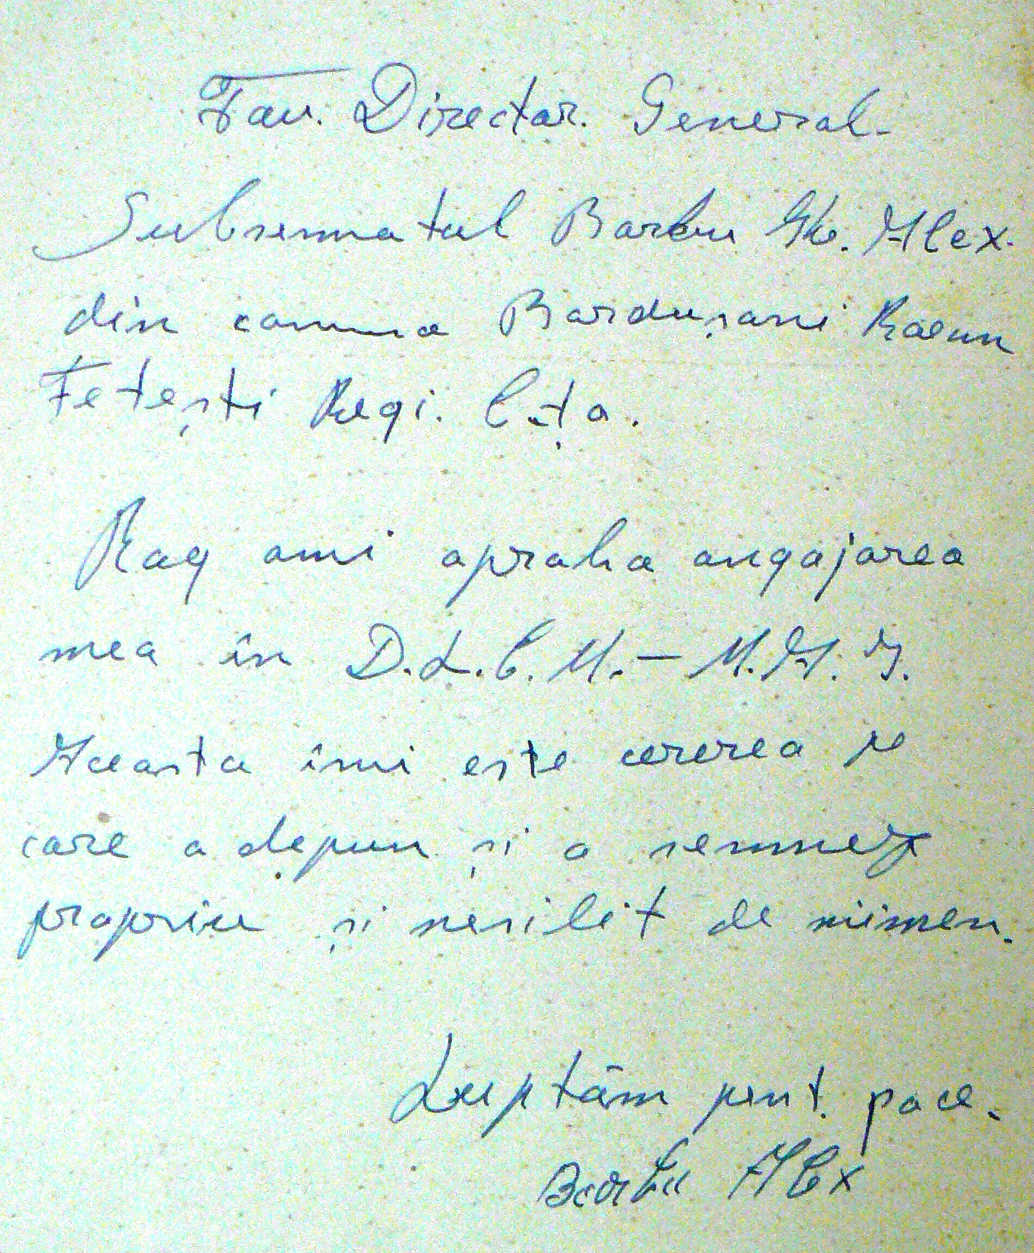 Tov. Director. General.
Subsemnatul Barbu Gh. Alex.
din comuna Bordușani Raeun
Fetești Regi. C-ța.
Rog ami aproba angajarea
mea în D.L.C.M.- M.A.I.
Aceasta îmi este cererea pe
care o depun și o semnez
propriu și nesilit de nimen.
Luptăm pent. pace.
Barbu Alex